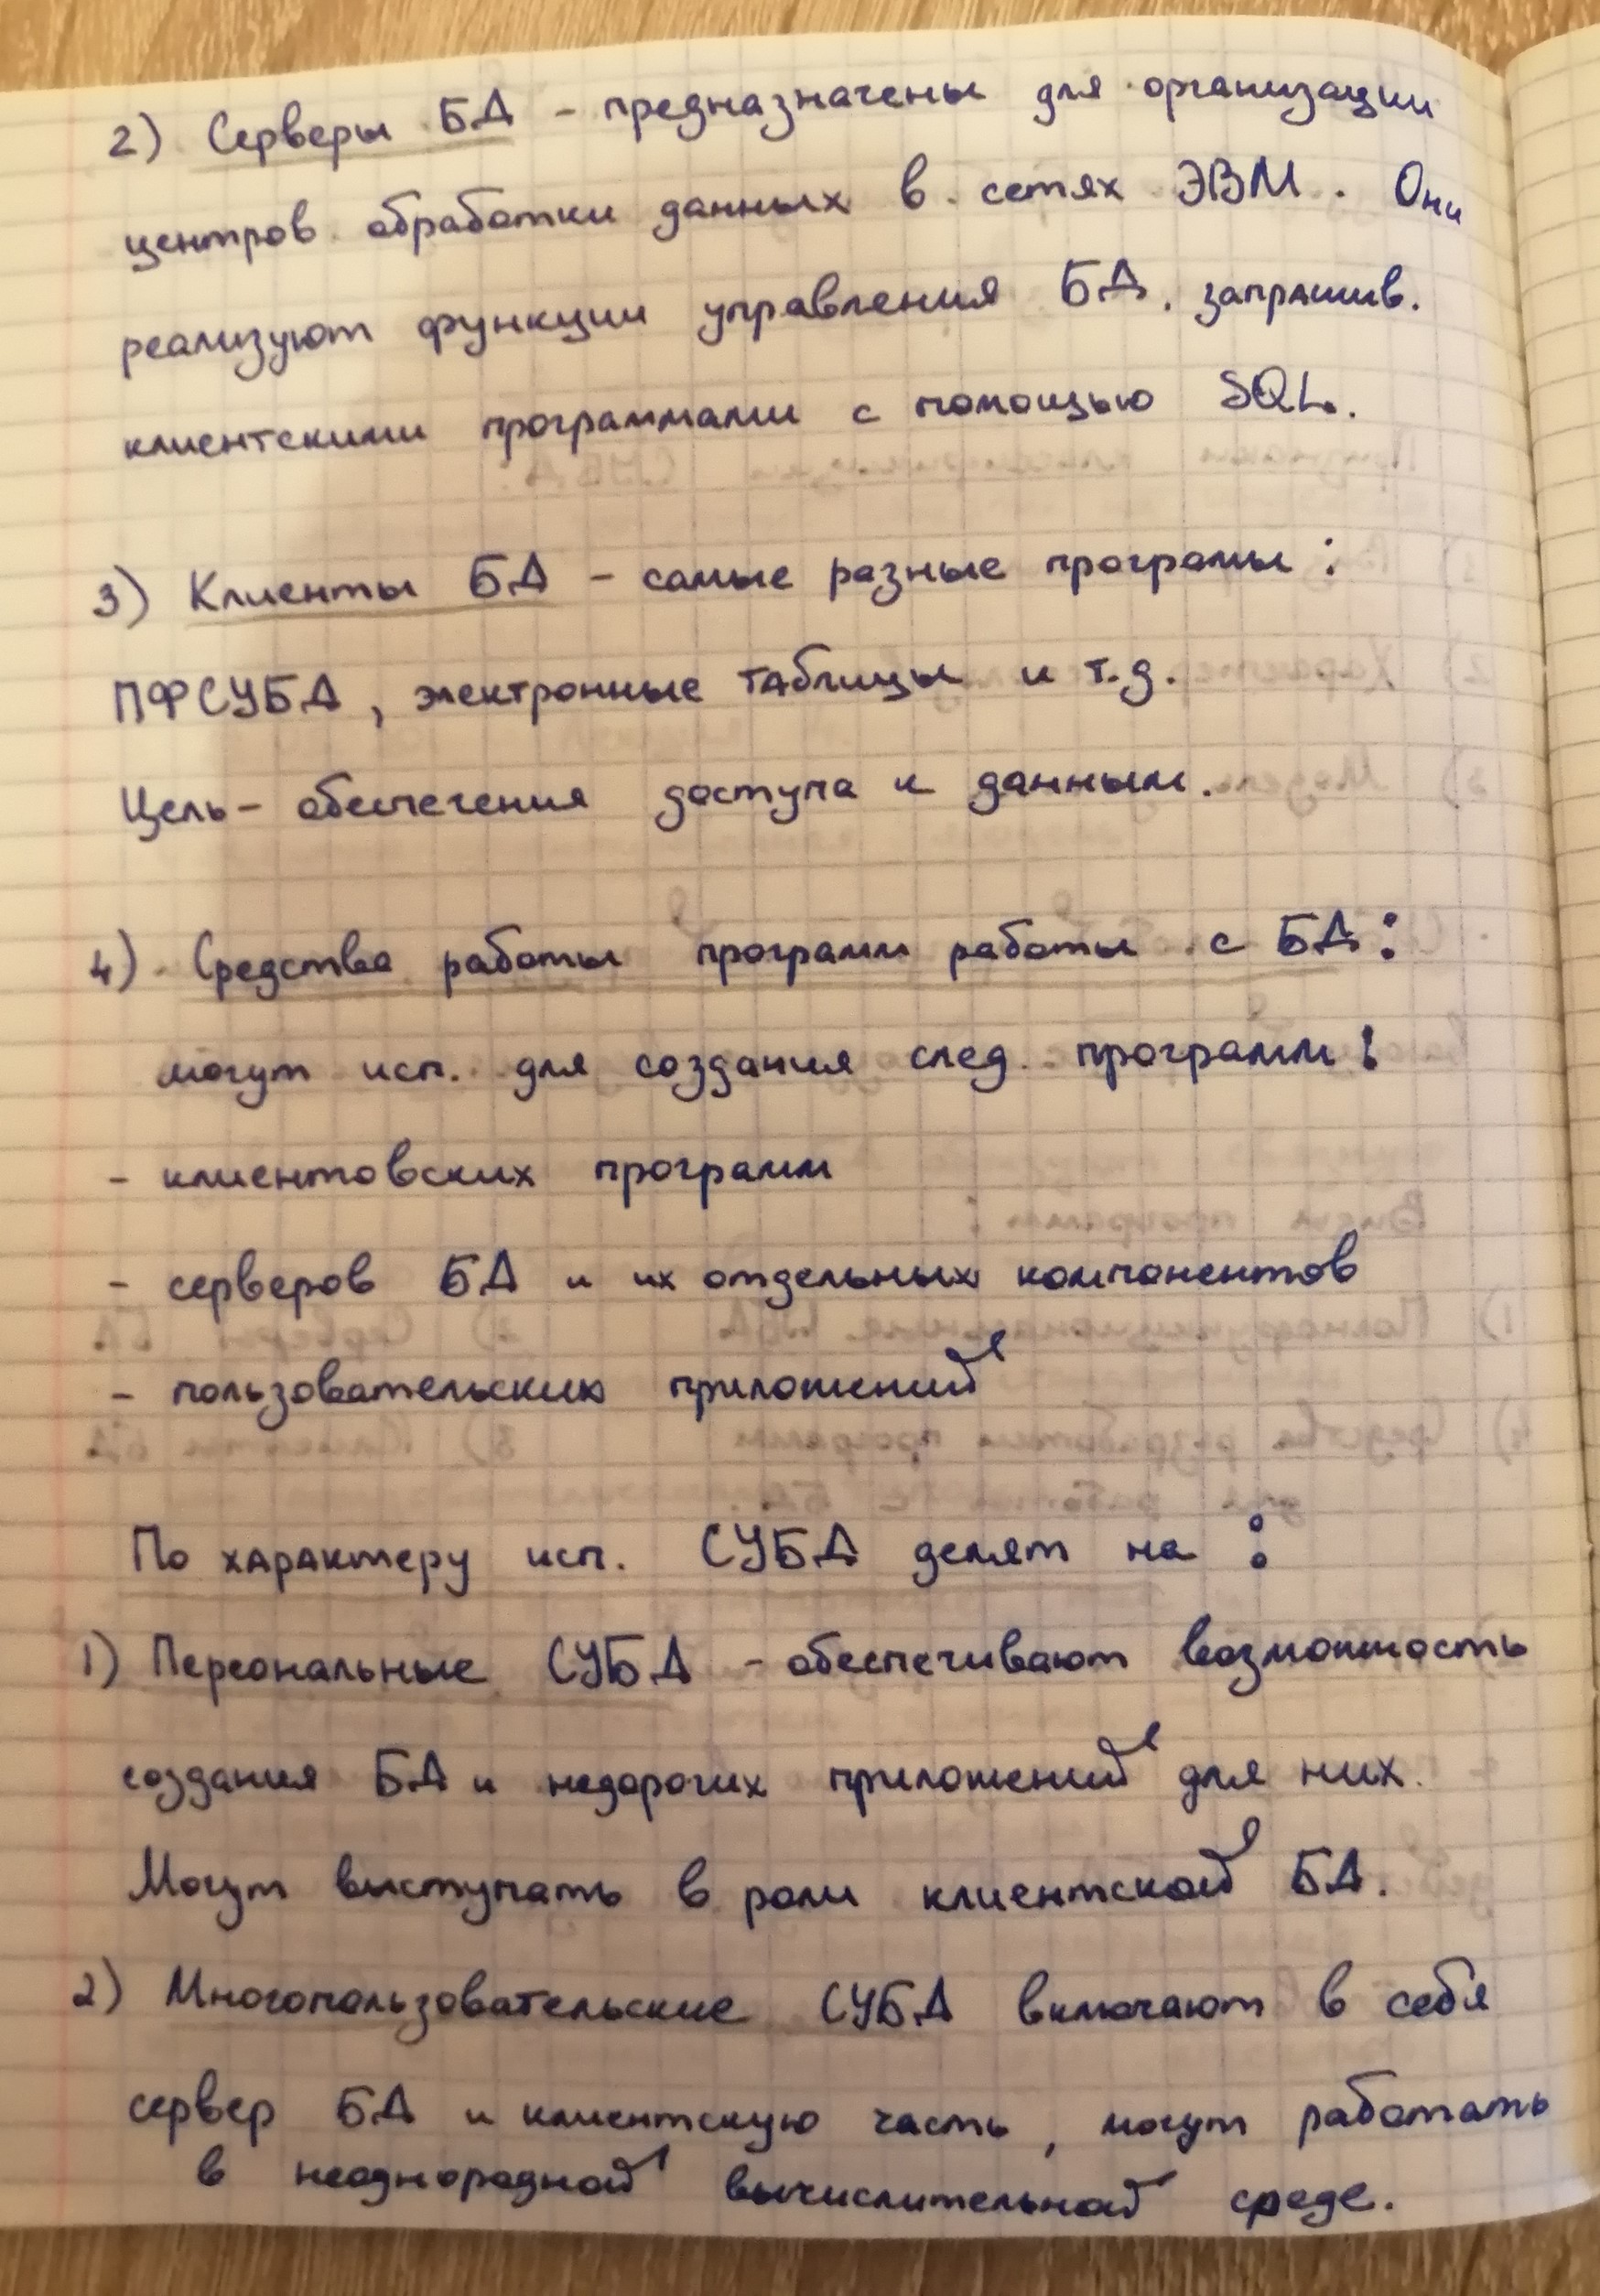 2) Серверы БД - предназначены для организации
центров обработки данных в сетях ЭВМ. Они
реализуют функции управления БД, запрашив.
клиентскими программами с помощью SQL.
3) Клиенты БД - самые разные програмы:
ПФСУБД, электронные таблицы и т.д.
Цель - обеспечения доступа к данным.
4) Средства работы программ работы с БД:
могут исп. для создания след. программ:
- клиентовских программ
- серверов БД и их отдельных компонентов
- пользовательских приложений
По характеру исп. СУБД делят на:
1) Персональные СУБД - обеспечивают возможность
создания БД и недорогих приложений для них.
Могут выступать в роли клиентской БД.
2) Многопользовательские СУБД включают в себя
сервер БД и клиентскую часть, могут работать
в неоднородной вычислительной среде.